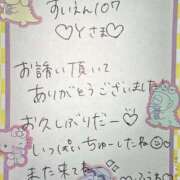 すいえん107
♡とさま♡
お誘い頂いて
ありがとうございました
お久しぶりだー♡
いっぱいちゅーしたね
また来てね